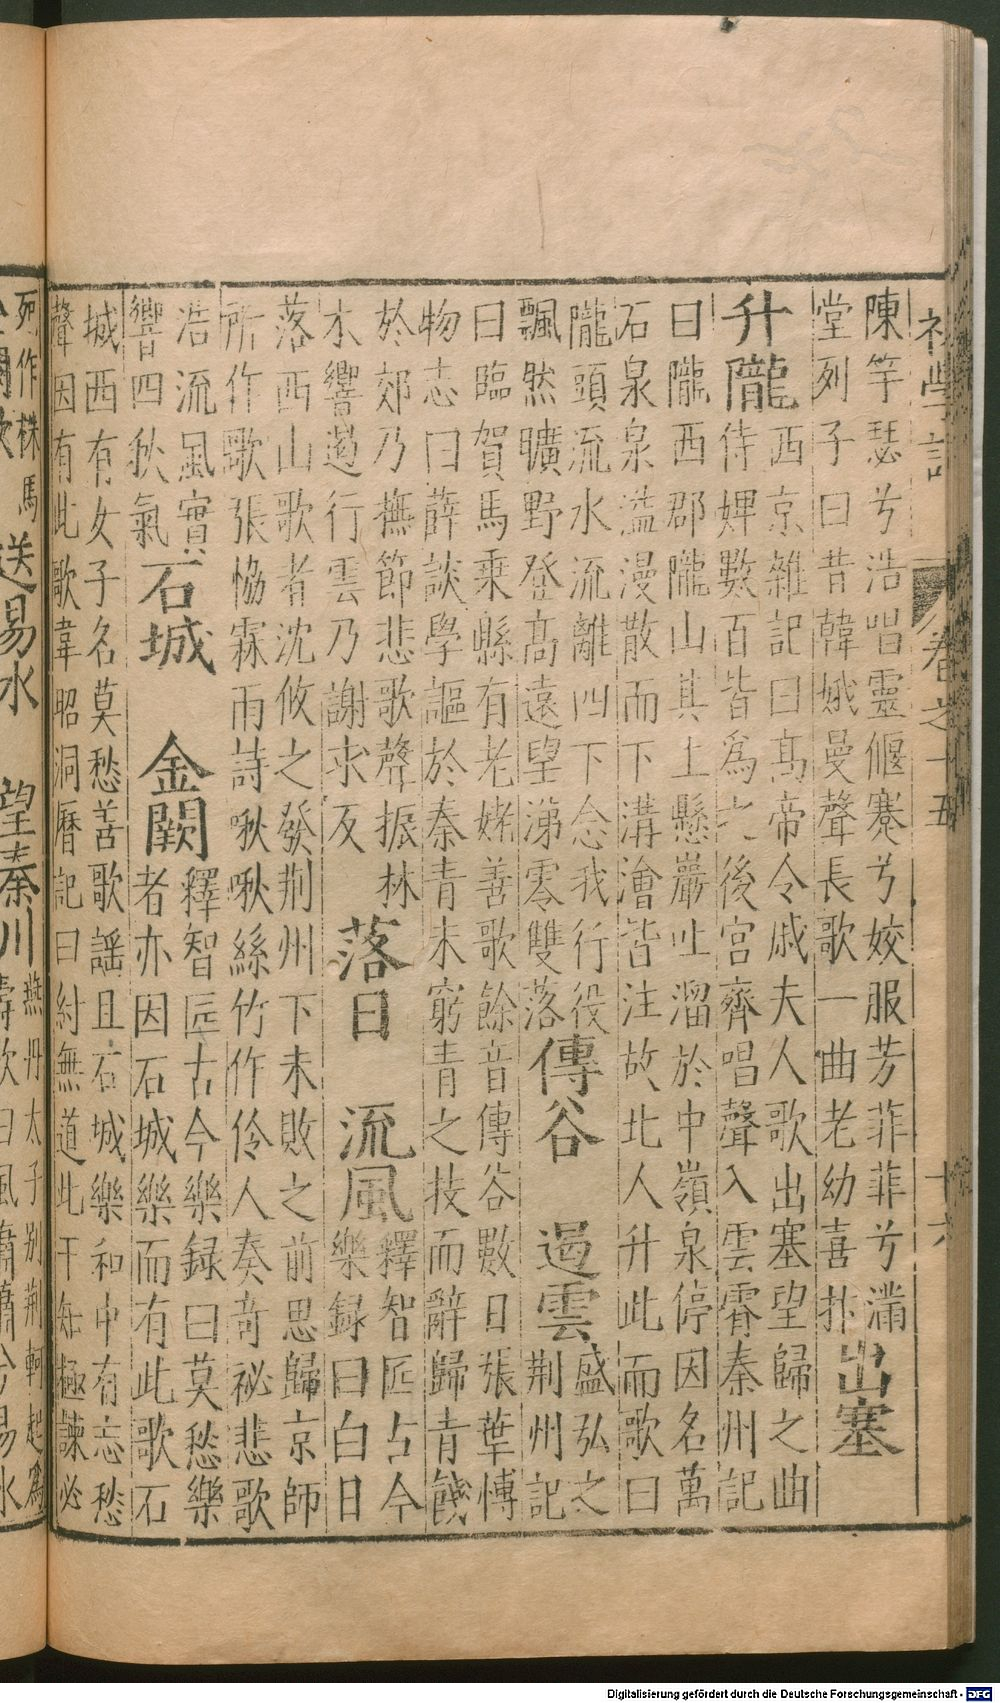 初學記 卷之十五 十六
陳竽瑟兮浩唱靈偃蹇兮姣服芳菲菲兮滿
堂列子曰昔韓娥曼聲長歌一曲老幼喜抃
出塞
升隴
西京雜記曰高帝令戚夫人歌出塞望歸之曲
侍婢數百皆爲之後宮齊唱聲入雲霄秦州記
曰隴西郡隴山其上懸巖吐溜於中嶺泉停因名萬
石泉泉溢漫散而下溝澮皆注故北人升此而歌曰
隴頭流水流離四下念我行役
飄然曠野登高遠望涕零雙落
傳谷 遏雲
盛弘之
荆州記
曰臨賀馬乘縣有老姥善歌餘音傳谷數日張華博
物志曰薛談學謳於秦青未窮青之技而辭歸青餞
於郊乃撫節悲歌聲振林
木響遏行雲乃謝求反
落日 流風
釋智匠古今
樂録曰白日
落西山歌者沈攸之發荆州下未敗之前思歸京師
所作歌張恊霖雨詩啾啾絲竹作伶人奏奇祕悲歌
浩流風實
響四秋氣
石城 金闕
釋智匠古今樂録曰莫愁樂
者亦因石城樂而有此歌石
城西有女子名莫愁苦歌謡且石城樂和中有忘愁
聲因有此歌韋昭洞曆記曰紂無道比干知極諫必
死作秣馬
金闕歌
送易水 望秦川
燕丹太子別荆軻起爲
壽歌曰風蕭蕭兮易水
Digitalisierung gefördert durch die Deutsche Forschungsgemeinschaft - DFG